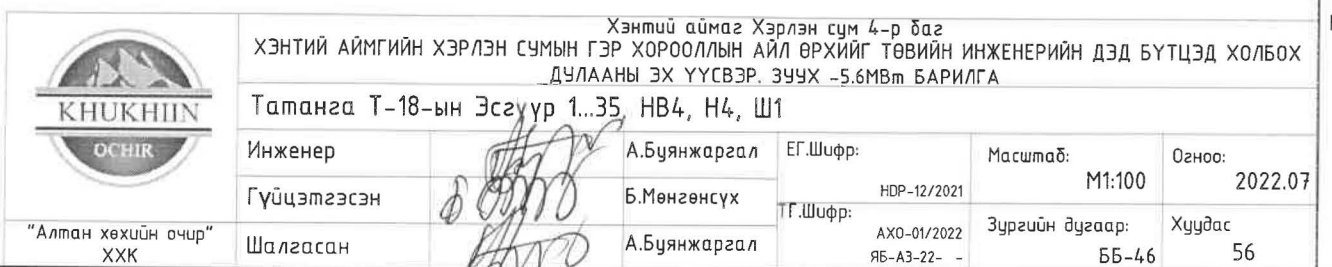 Хэнтий аймаг Хэрлэн сум 4-р баг
ХЭНТИЙ АЙМГИЙН ХЭРЛЭН СУМЫН ГЭР ХОРООЛЛЫН АЙЛ ӨРХИЙГ ТӨВИЙН ИНЖЕНЕРИЙН ДЭД БҮТЦЭД ХОЛБОХ
ДУЛААНЫ ЭХ ҮҮСВЭР. ЗУУХ -5.6МВт БАРИЛГА
KHUKHIIN
OCHIR
"Алтан хөхийн очир"
ХХК
Татанга Т-18-ын Эсгүүр 1...35, НВ4, Н4, Ш1
Инженер
А.Буянжаргал
Гүйцэтгэсэн
Б.Мөнгөнсүх
Шалгасан
А.Буянжаргал
ЕГ.Шифр:
HDP-12/2021
ТГ.Шифр:
АХО-01/2022
ЯБ-АЗ-22- -
Масштаб:
М1:100
Огноо:
2022.07
Зургийн дугаар:
ББ-46
Хуудас
56